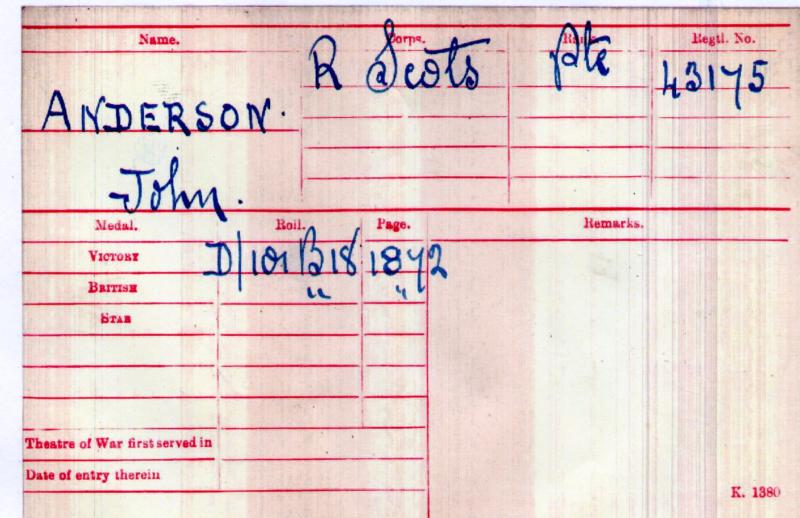 Name. Corps. Rank. Regtl. No.
R Scots Pte 43175
ANDERSON.
John.
Medal. Roll. Page. Remarks.
VICTORY D/101 B18 1872
BRITISH " "
STAR
Theatre of War first served in
Date of entry therein
K. 1380